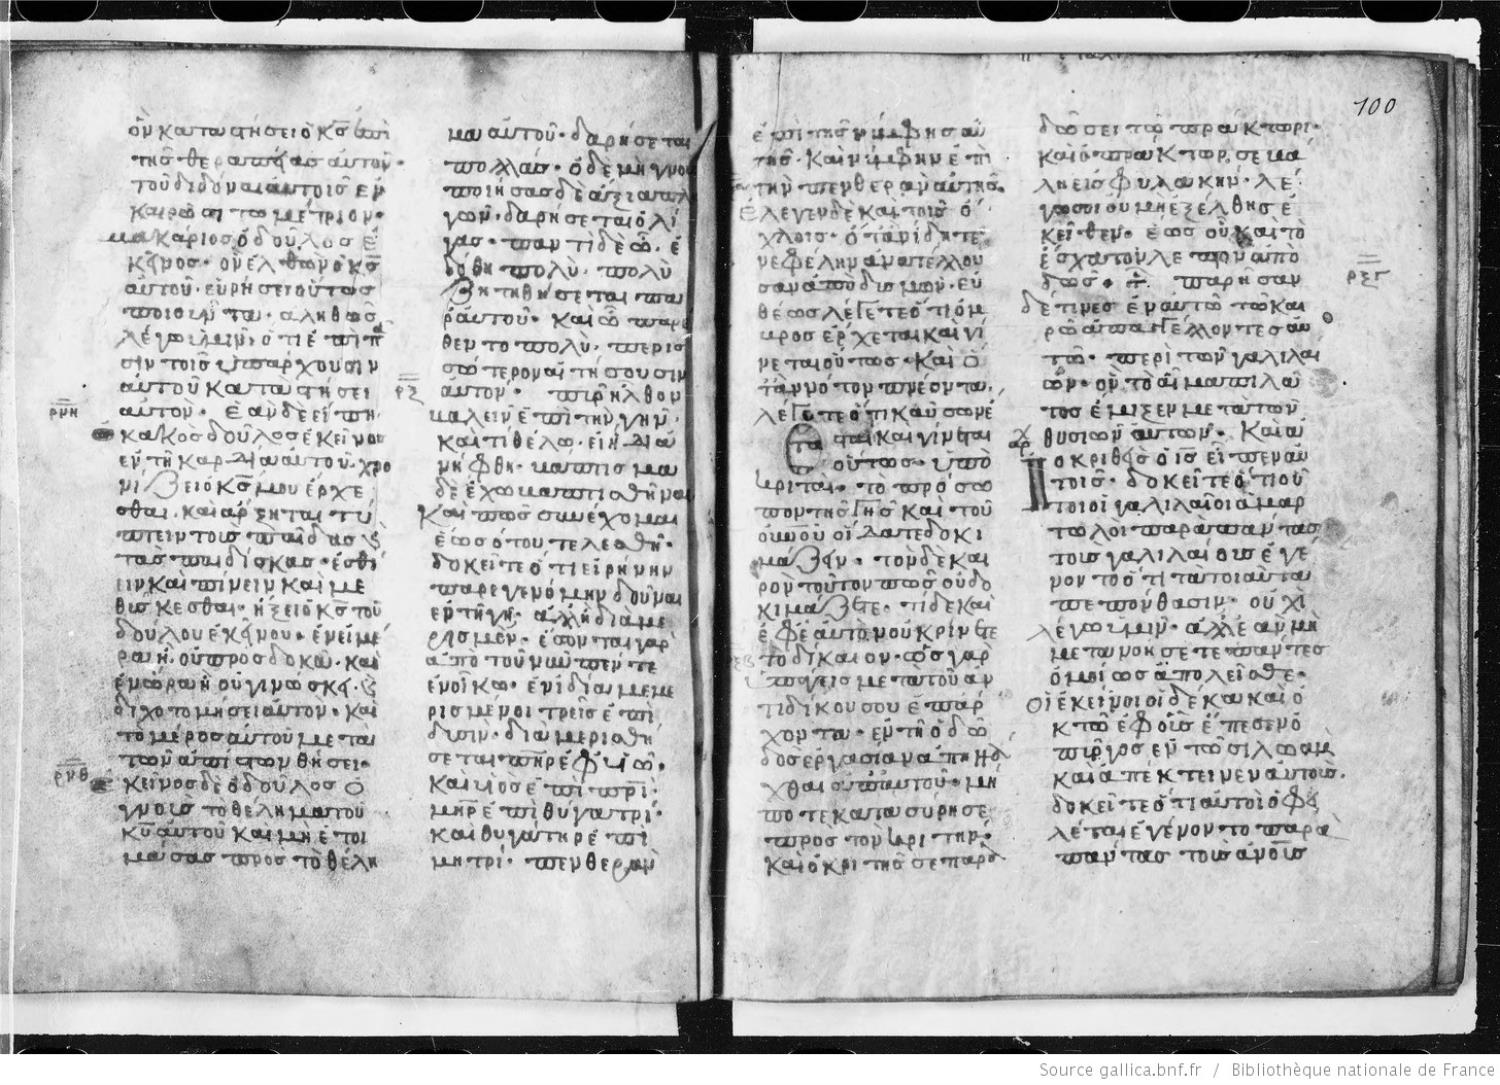 ὃν καταστήσει ὁ κ̅ς̅ ἐπὶ
τῆς θεραπείας αὐτοῦ·
τοῦ διδόναι αὐτοῖς ἐν
καιρῶ τὸ σιτομέτριον·
μακάριος ὁ δοῦλος ἐ
κεῖνος· ὃν ἐλθὼν ὁ κ̅ς̅
αὐτοῦ· εὑρήσει οὕτως
ποιοῦντα· ἀληθῶς
λέγω ὑμῖν, ὅτι ἐπὶ π
σιν τοῖς ὑπάρχουσιν
αὐτοῦ καταστήσει
αὐτόν· ἐὰν δὲ εἴπη·
ρνη
κακὸς δοῦλος ἐκεῖνος
ἐν τῆ καρδία αὐτοῦ· χρο
νίζει ὁ κ̅ς̅ μου ἔρχε
σθαι· καὶ ἄρξηται τύ
πτειν τοὺς παῖδας καὶ
τὰς παιδίσκας· ἐσθί
ειν καὶ πίνειν καὶ με
θύσκεσθαι· ἥξει ὁ κ̅ς̅ τοῦ
δούλου ἐκείνου· ἐν ἡμέ
ρα ἧ οὐ προσδοκᾶ· καὶ
ἐν ὥρα ἧ οὐ γινώσκει· καὶ
διχοτομήσει αὐτόν· καὶ
τὸ μέρος αὐτοῦ μετὰ
τῶν ἀπίστων θήσει·
ρνθ
κεῖνος δὲ ὁ δοῦλος ὁ
γνοὺς τὸ θέλημα τοῦ
κ̅υ̅ αὐτοῦ καὶ μὴ ἑτοι
μάσας πρὸς τὸ θέλη
μα αὐτοῦ· δαρήσεται
πολλάς· ὁ δὲ μὴ γνοὺ
ποιήσας δὲ ἄξια πλη
γῶν· δαρήσεται ὀλί
γας· παντὶ δὲ ὧ· ἐ
δόθη πολὺ· πολὺ
ζητηθήσεται παρ
ρ᾽ αὐτοῦ· καὶ ὧ παρέ
θεντο πολὺ· περισ
σώτερον αἰτήσουσιν
αὐτόν· πῦρ ἦλθον
ρξ
βαλεῖν ἐπὶ τὴν γῆν·
καὶ τί θέλω· εἰ ἤδη ἀ
νήφθη· βάπτισμα
δὲ ἔχω βαπτισθῆναι
καὶ πῶς συνέχομαι
ἕως ὅτου τελεσθῆ·
δοκεῖτε ὅτι εἰρήνην
παρεγενόμην δοῦναι
ἐν τῆ γῆ· ἀλλ᾽ ἢ διαμε
ρισμόν· ἔσονται γὰρ
ἀπὸ τοῦ νῦν πέντε
ἐν οἴκω· ἐνὶ διαμεμε
ρισμένοι τρεῖς ἐπὶ
δυσίν· διαμερισθή
σεται π̅η̅ρ̅ ἐφ᾽ υἱῶ·
καὶ υἱὸς ἐπὶ π̅ρ̅ι̅·
μ̅η̅ρ̅ ἐπὶ θυγατρί·
καὶ θυγάτηρ ἐπὶ
μητρί· πενθερὰ
ἐπὶ τὴν νύμφην αὐ
τῆς· καὶ νύμφη ἐπὶ
τὴν πενθερὰν αὐτῆς·
ἔλεγεν δὲ καὶ τοῖς ὄ
χλοις· ὅταν ἴδητε
νεφέλην ἀνατέλλου
σαν ἀπὸ δυσμῶν· εὐ
θέως λέγετε ὅτι ὄμ
βρος ἔρχεται καὶ γί
νεται οὕτως· καὶ ὅ
ταν νότον πνέοντα·
λέγετε ὅτι καύσων ἔ
σται καὶ γίνεται
οὕτως· ὑπο
κριταί· τὸ πρόσω
πον τῆς γῆς καὶ τοῦ
οὐ̅νοῦ οἴδατε δοκι
μάζειν· τὸν δὲ και
ρὸν τοῦτον πῶς οὐ δο
κιμάζετε· τί δὲ καὶ
ἐφ᾽ ἑαυτῶν οὐ κρίνετε
τὸ δίκαιον· ὡς γὰρ
ὑπάγεις μετὰ τοῦ ἀν
τιδίκου σου ἐπ᾽ ἄρ
χοντα· ἐν τῆ ὁδῶ
δὸς ἐργασίαν ἀπηλλ
χθαι ἀπ᾽ αὐτοῦ· μή
ποτε κατασύρη σε
πρὸς τὸν κριτήν·
καὶ ὁ κριτής σε παρα
100
δώσει τῶ πράκτορι·
καὶ ὁ πράκτωρ, σε βά
λη εἰς φυλακήν· λέ
γω σοι οὐ μὴ ἐξέλθης ἐ
κεῖθεν· ἕως οὗ καὶ τὸ
ἔσχατον λεπτὸν ἀπο
ρξγ
δῶς· παρῆσαν
δέ τινες ἐν αὐτῶ τῶ και
ρῶ ἀπαγγέλλοντες αὐ
τῶ· περὶ τῶν γαλιλαί
ων· ὧν τὸ αἷμα πιλᾶ
τος ἔμιξεν μετὰ τῶν
θυσιῶν αὐτῶν· καὶ ἀ
ποκριθεὶς ὁ ι̅ς̅ εἶπεν αὐ
τοῖς· δοκεῖτε ὅτι οὗ
τοι οἱ γαλιλαῖοι ἁμαρ
τωλοὶ παρὰ πάντας
τοὺς γαλιλαίους ἐγέ
νοντο ὅτι τὰ τοιαῦτα
πεπόνθασιν· οὐχὶ
λέγω ὑμῖν· ἀλλ᾽ ἐὰν μὴ
μετανοήσετε πάντες
ὁμοίως ἀπολεῖσθε·
Οἱ ἐκεῖνοι οἱ δέκα καὶ ὀ
κτὼ ἐφ᾽ οὓς ἔπεσεν ὁ
πύργος ἐν τῶ σιλωὰμ
καὶ ἀπέκτεινεν αὐτούς·
δοκεῖτε ὅτι αὐτοὶ ὀφει
λέται ἐγένοντο παρὰ
πάντας τοὺς ἀν̅ους
Source gallica.bnf.fr / Bibliothèque nationale de France